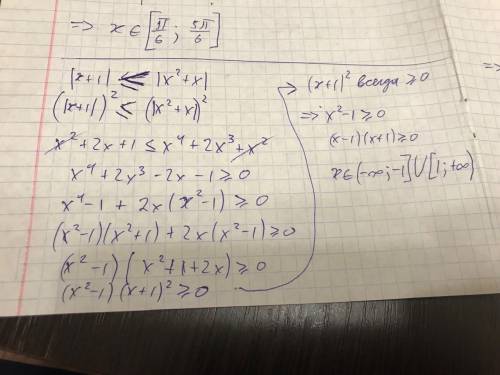 => x ∈ [π/6 ; 5π/6]
|x+1| ≤ |x²+x|
(|x+1|)² ≤ (|x²+x|)²
x² + 2x + 1 ≤ x⁴ + 2x³ + x²
x⁴ + 2x³ - 2x - 1 ≥ 0
x⁴ - 1 + 2x (x² - 1) ≥ 0
(x²-1)(x²+1) + 2x(x²-1) ≥ 0
(x²-1)(x²+1+2x) ≥ 0
(x²-1)(x+1)² ≥ 0
→ (x+1)² всегда ≥ 0
=> x²-1 ≥ 0
(x-1)(x+1) ≥ 0
x ∈ (-∞; -1] ∪ [1; +∞)
=>